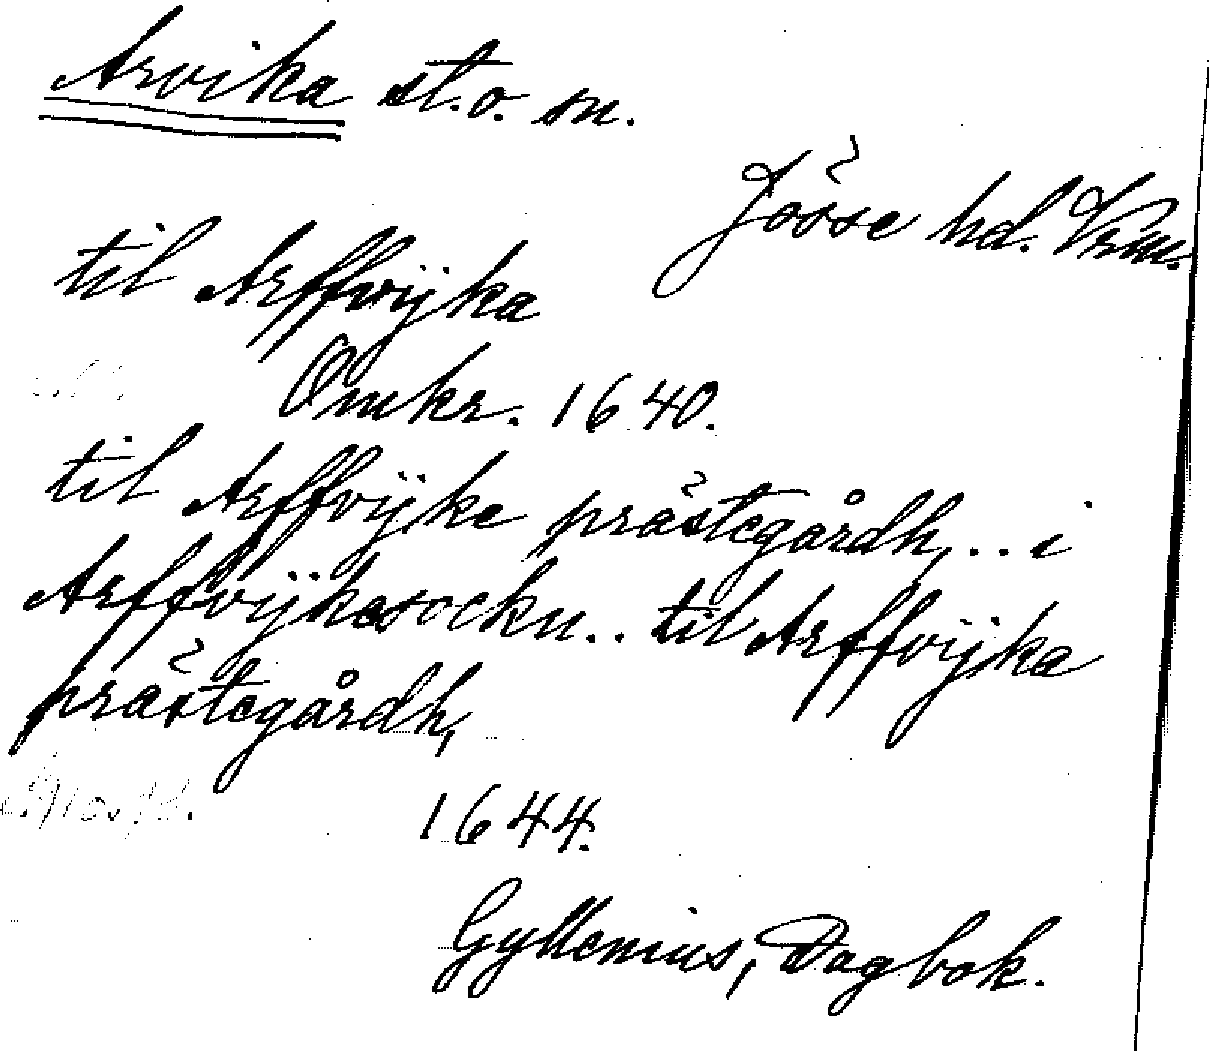 Arvika st. o. sn.
Jösse hd. Vrm.
til Arffwijka
Omkr. 1640.
til Arffvijke prästegårdh, .. i
Arffvijkesockn .. til Arffvijka
prästegårdh,
1644.
Gyllenius, Dagbok.